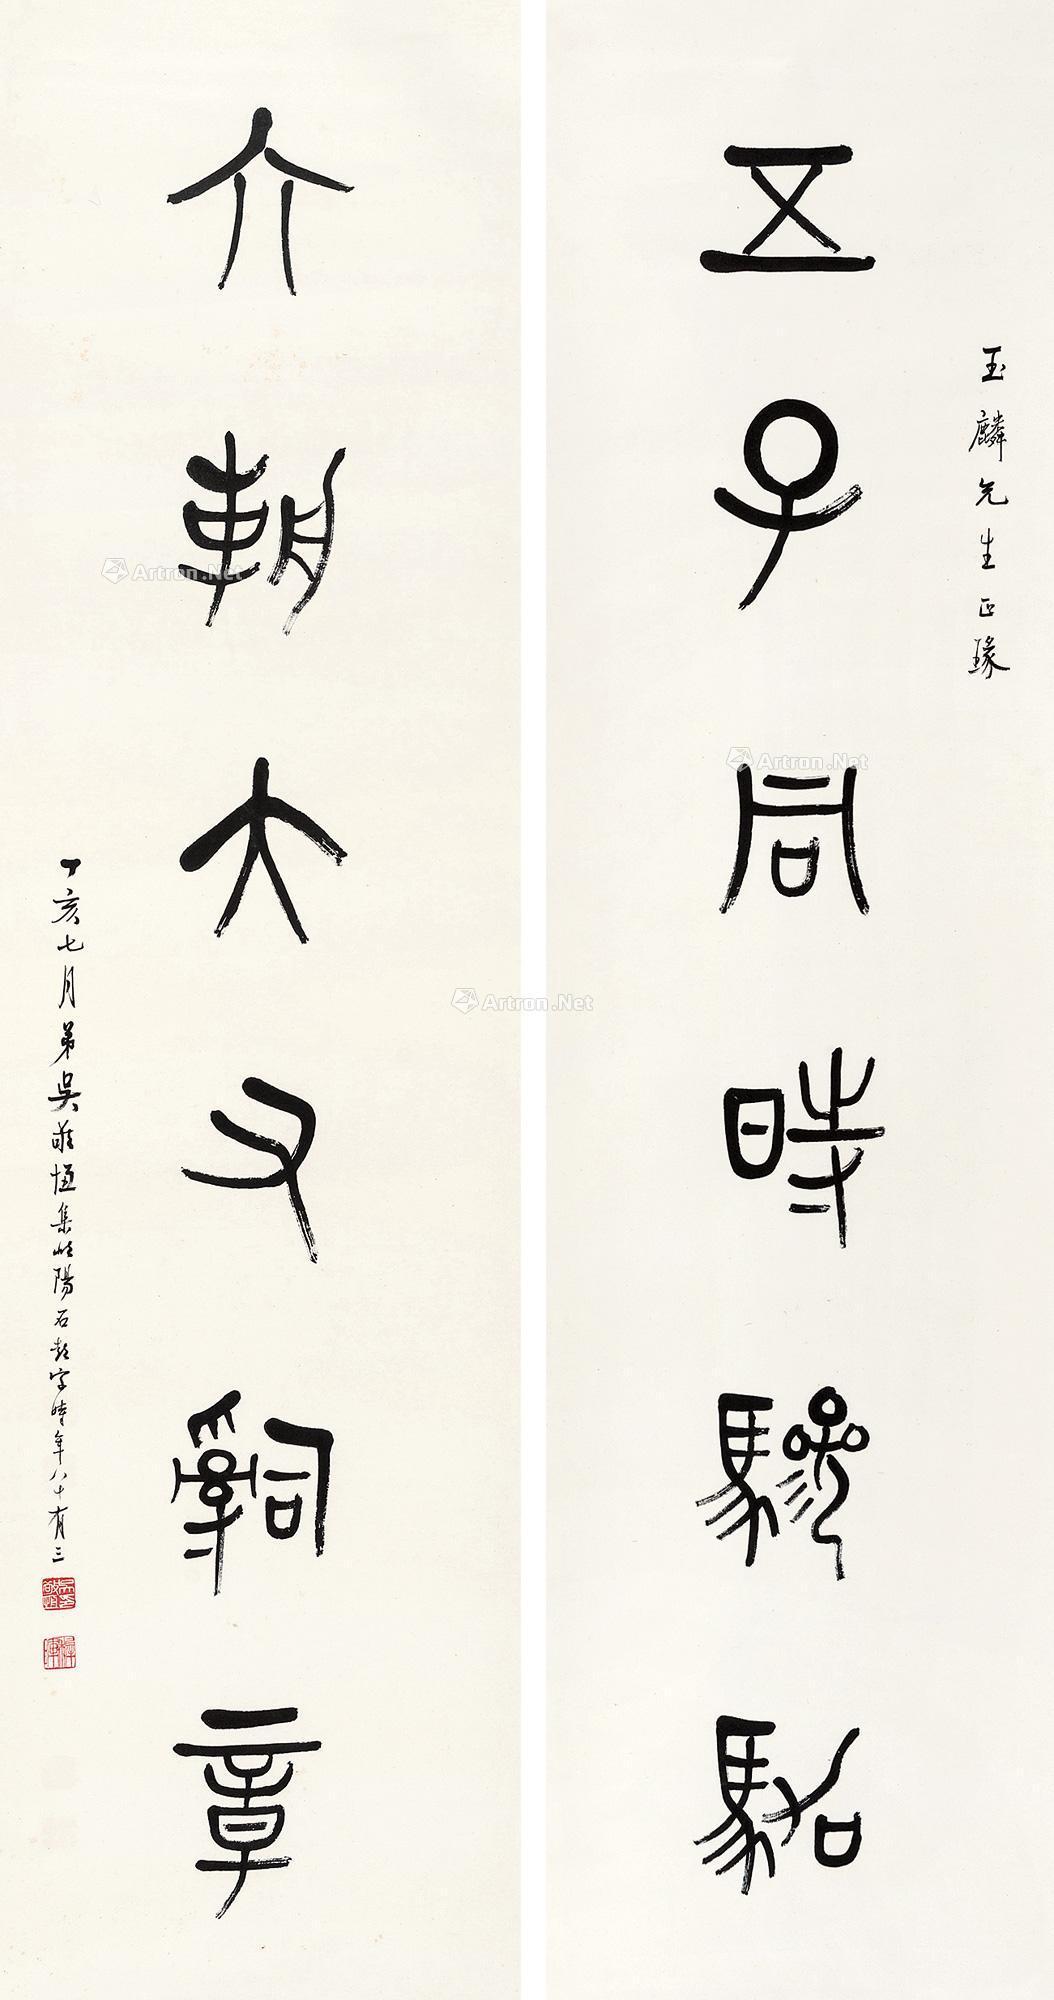 玉麟先生正瑑
五子同時驂駱
六朝大文辭章
丁亥七月弟吳敬恆集岐陽石鼓字時年八十有三
Artron.Net
Artron.Net
Artron.Net